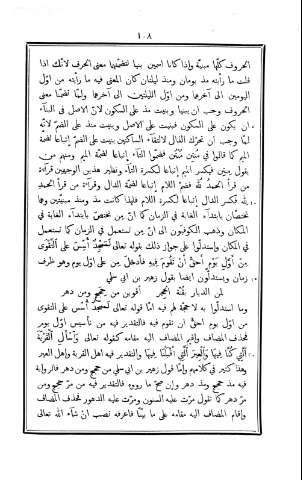 ١٠٨
الحروف كلّها مبنيّة واذا كانا اسمين بنيا لتضمّنهما معنى الحرف لانّك اذا
قلت ما رأيته مذ يومان ومنذ ليلتان كان المعنى فيه ما رأيته من اوّل
اليومين الى آخرهما ومن اوّل الليلتين الى آخرهما ولمّا تضمّنا معنى
الحروف وجب ان يبنيا وبنيت مذ على السكون لانّ الاصل فى البنآء
ان يكون على السكون فبنيت على الاصل وبنيت منذ على الضمّ لانّه
لمّا وجب ان تحرّك الذال لالتقآء الساكنين بنيت على الضمّ إتباعا لضمّة
الميم كما قالوا فى مُنتِن مُنتُن فضمّوا التآء إتباعا لضمّة الميم ومنهم من
يقول مِنتِن فيكسر الميم لكسرة التآء ونظير هذين الوجهين قرآءة
من قرأ الحمدُ لُله فضمّ اللام إتباعا لضمّة الدال وقرآءة من قرأ الحمدِ
لِله فكسر الدال إتباعا لكسرة اللام فلهذا كانت مذ ومنذ مبنيّتين وهما
تختصّان بابتدآء الغاية فى الزمان كما انّ من تختصّ بابتدآء الغاية فى
المكان وذهب الكوفيّون الى انّ من تستعمل فى الزمان كما تستعمل
فى المكان واستدلّوا على جواز ذلك بقوله تعالى لَمَسْجِدٌ أُسِّسَ عَلَى التَّقْوَى
مِنْ أَوَّلِ يَوْمٍ أَحَقُّ أَنْ تَقُومَ فِيهِ فأدخل مِن على اوّل يوم وهو ظرف
زمان واستدلّوا ايضا بقول زهير بن ابى سلمى
لمن الديار بقُنّة الحِجر اقوين من حِجج ومن دهر
وما استدلّوا به لا حجّة لهم فيه امّا قوله تعالى لَمَسْجِدٌ أُسِّسَ على التقوى
من اوّل يوم احقّ ان تقوم فيه فالتقدير فيه من تأسيس اوّل يوم
فحذف المضاف واقم المضاف اليه مقامه كقوله تعالى وَاسْأَلِ الْقَرْيَةَ
الَّتِي كُنَّا فِيهَا وَالْعِيرَ الَّتِي أَقْبَلْنَا فِيهَا والتقدير فيه اهل القرية واهل العير
وهذا كثير فى كلامهم وامّا قول زهير بن ابى سلمى من حجج ومن دهر فالرواية
فيه مذ حجج ومذ دهر وإن صحّ ما رووه فالتقدير فيه من مرّ حجج ومن
مرّ دهر كما تقول مرّت عليه السنون ومرّت عليه الدهور فحذف المضاف
واقام المضاف اليه مقامه على ما بيّنّا فاعرفه تصب ان شآء الله تعالى